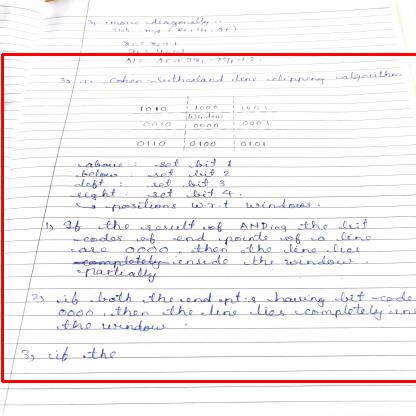 3, move diagonally.
sub
3) Cohen-Sutherland line clipping algorithm
1010 1000 1001
window
0010 0000 0001
0110 0100 0101
above: set bit 1
below: set bit 2
left: set bit 3
right: set bit 4.
→ positions w.r.t windows.
1) If the result of ANDing the bit
-codes of end points of a line
are 0000, then the line lies
completely inside the window.
partially
2) if both the end pt.s having bit-code
0000, then the line lies completely
the window.
3, if the